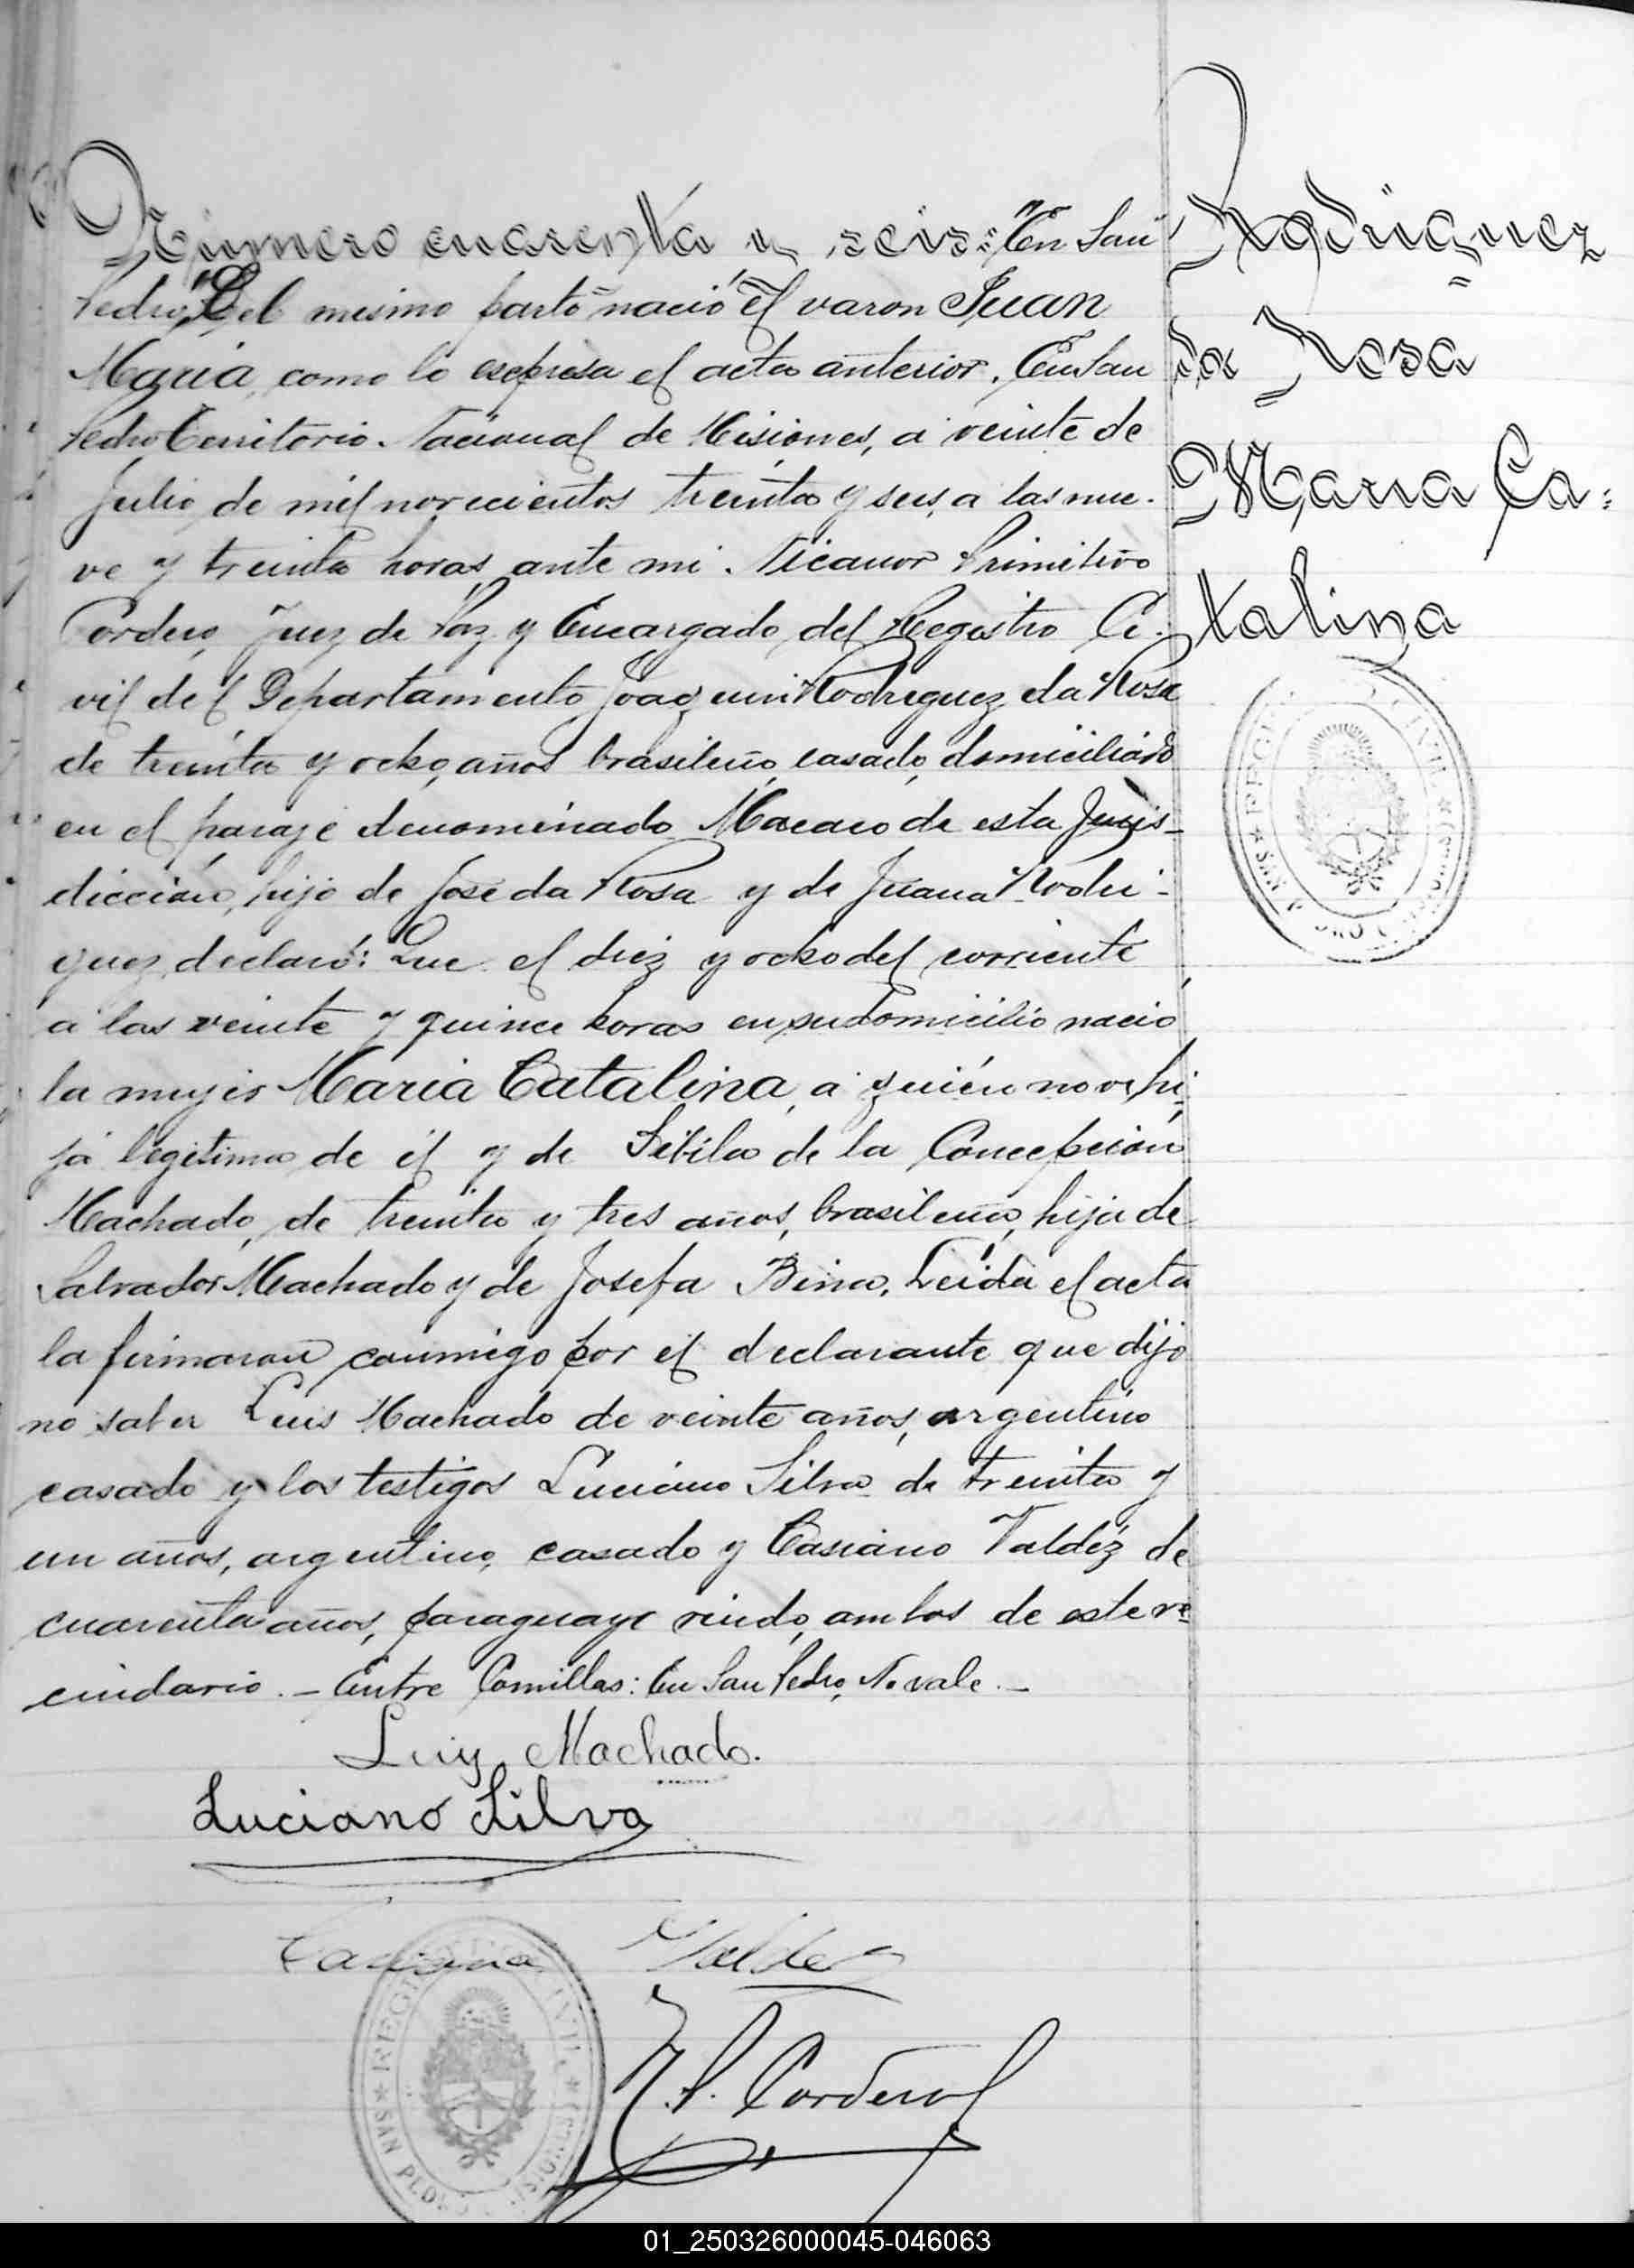 Número cuarenta y seis: "En San
Pedro", Del mismo parto nació el varon Juan
María, como lo expresa el acta anterior. En San
Pedro Territorio Nacional de Misiones, a veinte de
Julio de mil novecientos treinta y seis, a las nue-
ve y treinta horas, ante mi Nicanor Primitivo
Cordero, Juez de Paz y Encargado del Registro Ci-
vil del Departamento Joaquin Rodriguez da Rosa
de treinta y ocho, años brasileño, casado, domiciliado
en el paraje denominado Macaco de esta Juris-
dicción, hijo de José da Rosa y de Juana Rodri-
guez, declaró: Que el diez y ocho del corriente
a las veinte y quince horas en su domicilio nació
la mujer María Catalina, a quién no ví, hi-
ja legitima de él y de Sibila de la Concepción
Machado, de treinta y tres años, brasileña, hija de
Salvador Machado y de Josefa Bina. Leída el acta
la firmaron conmigo por el declarante que dijo
no saber Luis Machado de veinte años, argentino
casado y los testigos Luciano Silva de treinta y
un años, argentino, casado y Casiano Valdéz de
cuarenta años, paraguayo viudo, ambos de este ve-
cindario. - Entre Comillas: En San Pedro, No vale. -
Luis Machado.
Luciano Silva
Casiano Valdez
N. P. Cordero
Rodriguez
da Rosa
María Ca-
talina
REGISTRO CIVIL
SAN PEDRO (MISIONES)
REGISTRO CIVIL
SAN PEDRO (MISIONES)
01_250326000045-046063